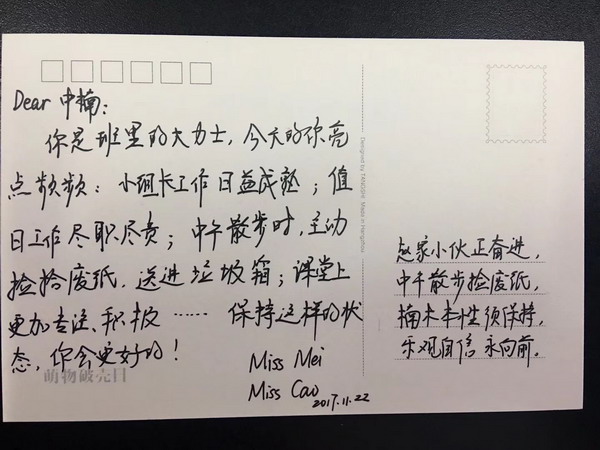 Dear 中楠:
你是班里的大力士,今天的你亮
点频频:小组长工作日益成熟;值
日工作尽职尽责;中午散步时,主动
捡拾废纸,送进垃圾箱;课堂上
更加专注、积极……保持这样的状
态,你会更好的!
Miss Mei
Miss Cao
2017.11.22
萌物破壳日
赵家小伙正奋进,
中午散步捡废纸,
楠木本性须保持,
乐观自信永向前。